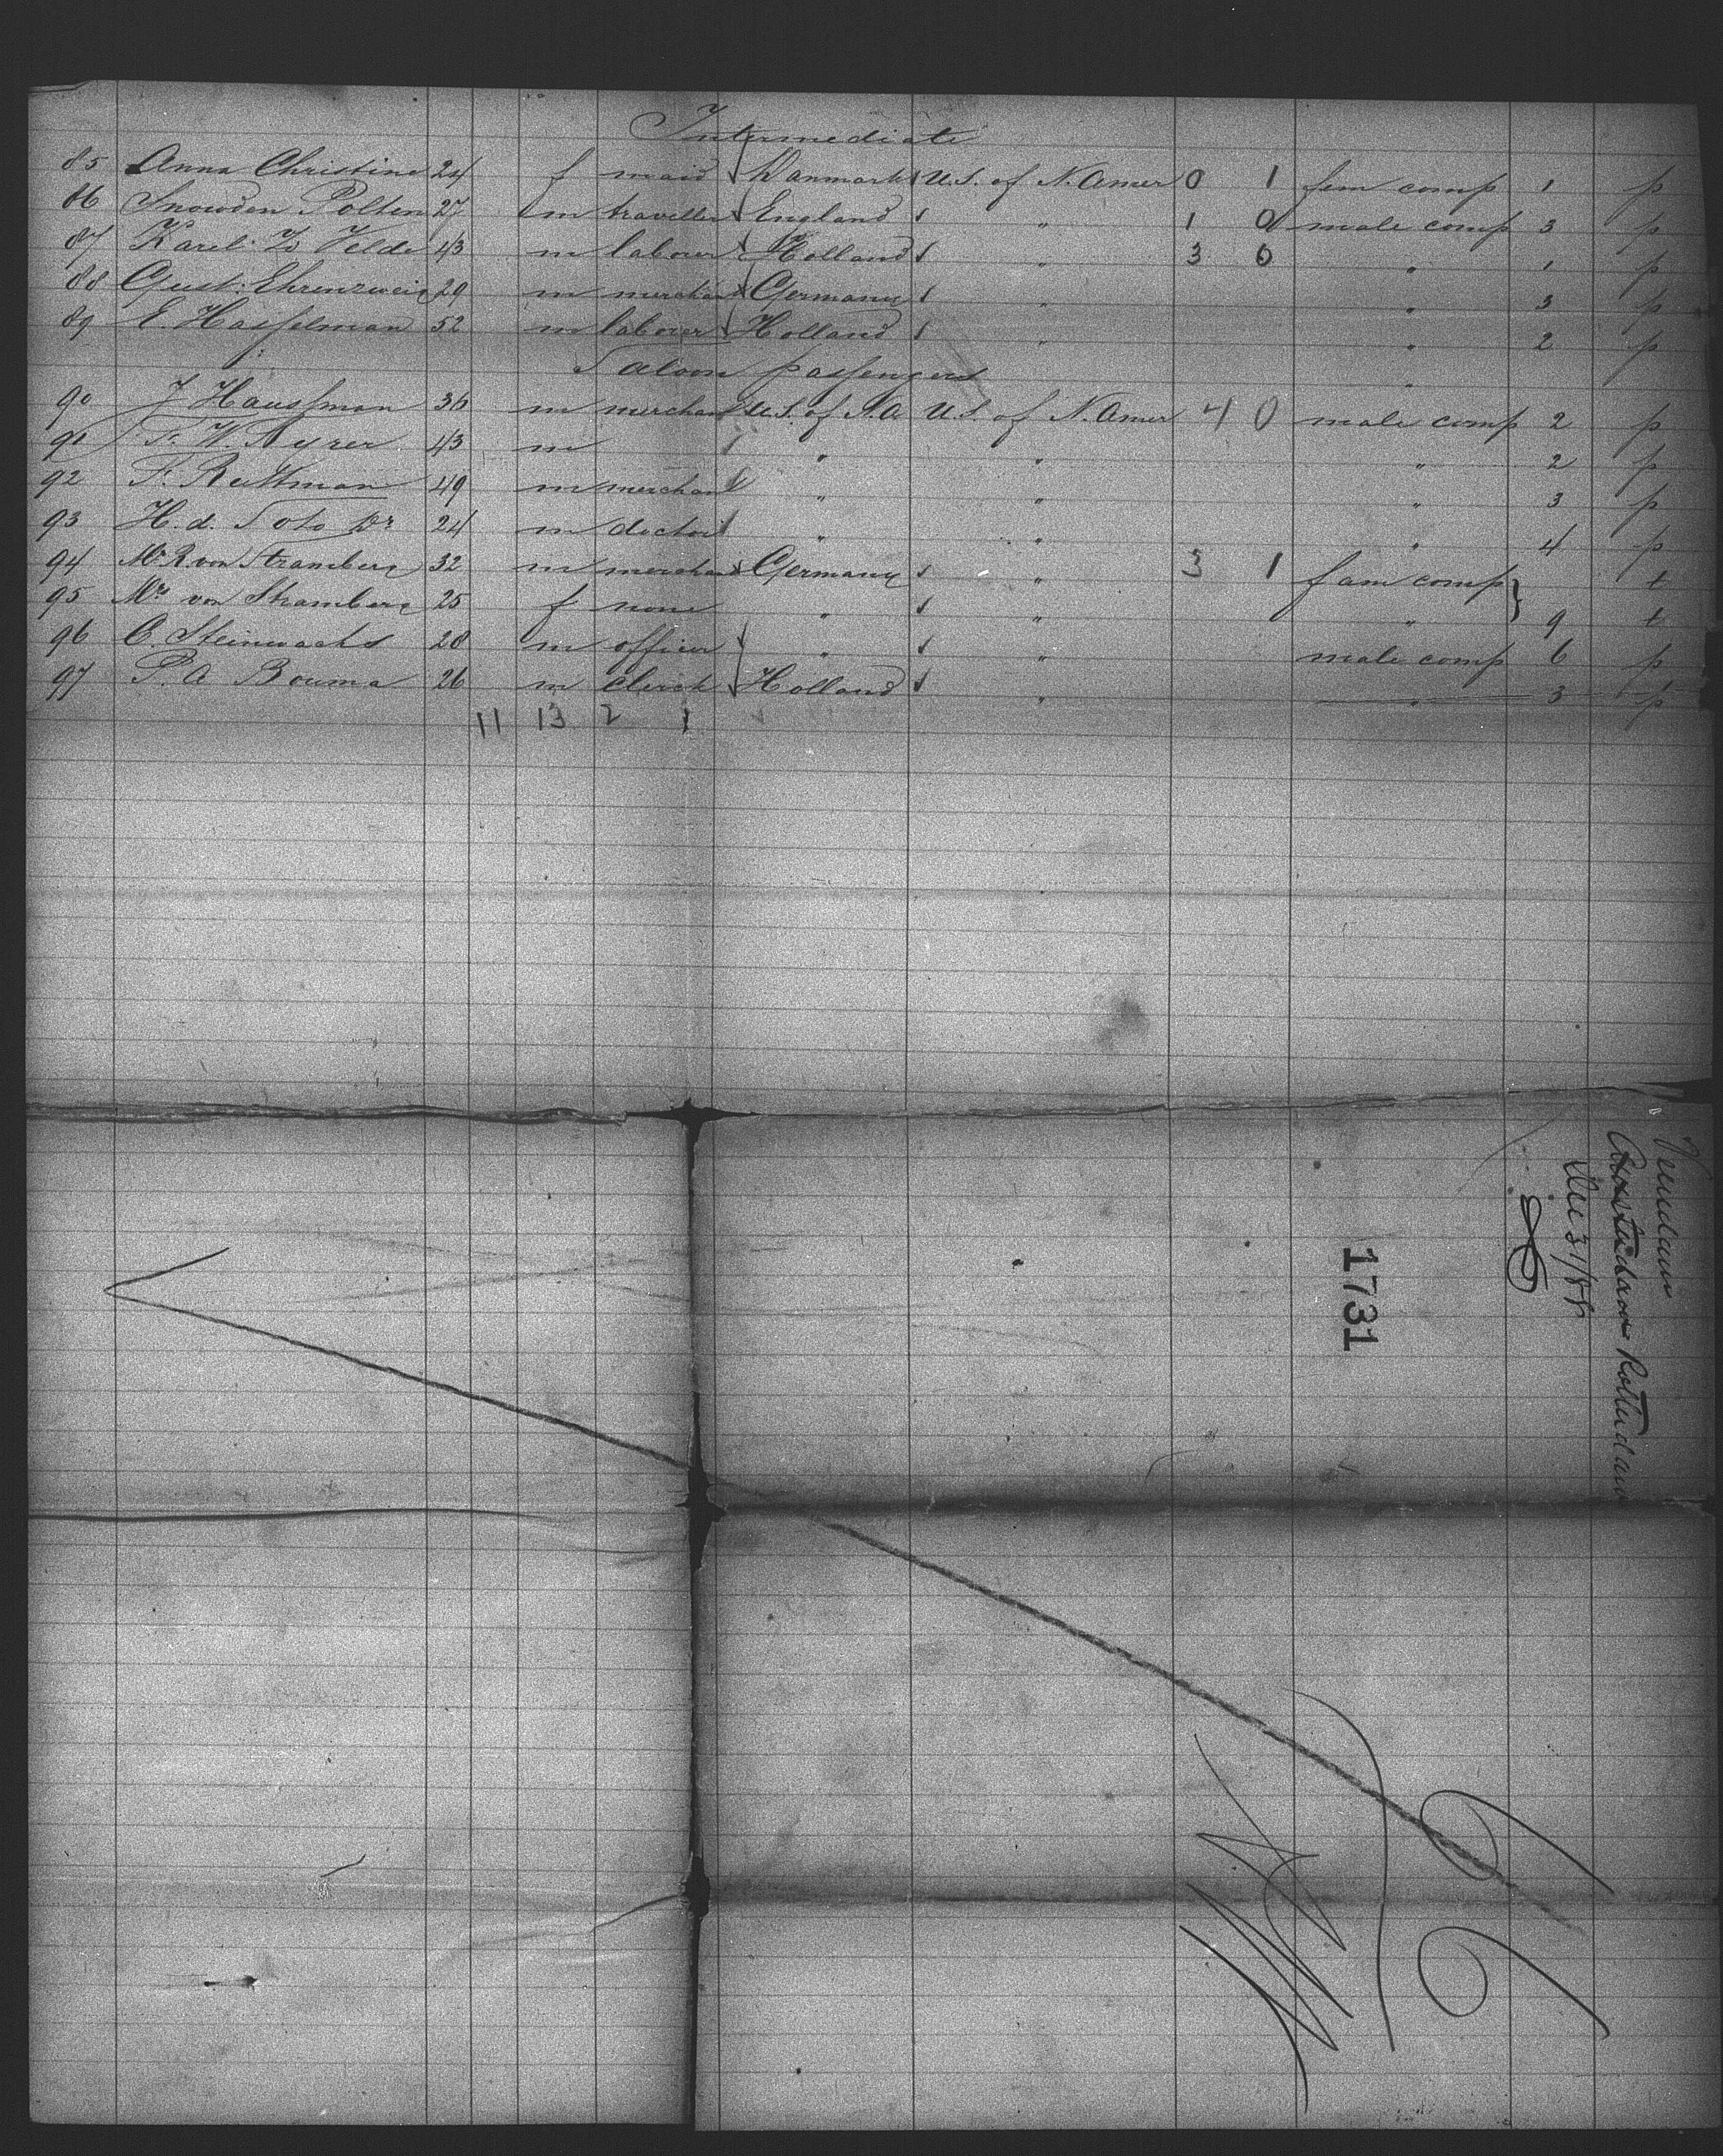 Intermediate
85 Anna Christine 24 f maid Danmark U.S. of N. Amer 0 1 fem comp 1 p
86 Snowden Polten 27 m traveller England " 1 0 male comp 3 p
87 Karel Velde 43 m laborer Holland " 3 0 " 1 p
88 Gust: Ehrenzweig 29 m merchant Germany " " 3 p
89 E. Hasselman 52 m laborer Holland " " 2 p
Saloon passengers "
90 J Haussman 30 m merchant U.S. of N.A U.S. of N. Amer 4 0 male comp 2 p
91 F. W. Ayrer 43 m " " " 2 p
92 F. Ruttman 49 m merchant " " " 3 p
93 H. d. Soto Dr 24 m doctor " " " 4 p
94 Mr R von Stramberg 32 m merchant Germany " 3 1 fam comp } t
95 Mrs von Stramberg 25 f none " " " 9 t
96 C. Steinwachs 28 m officier " " male comp 6 p
97 P. A Bouma 26 m clerck Holland " " 3 p
11 13 2 1
Veendam
Amsterdam Rotterdam
Dec 31/88
1731